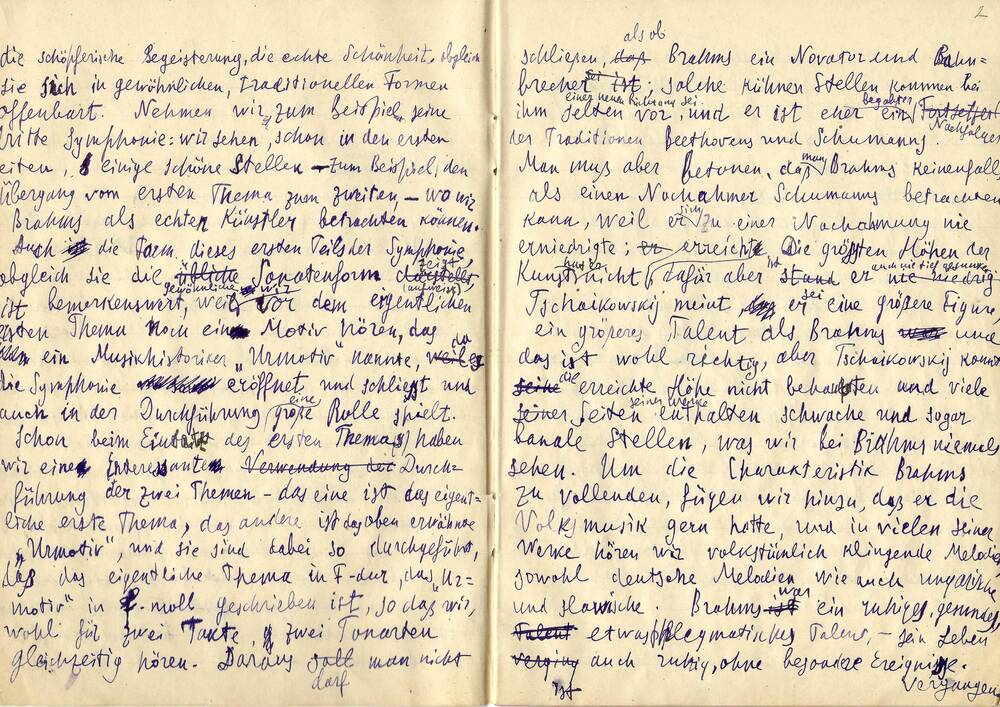 die schöpferische Begeisterung, die echte Schönheit, obgleich
sie sich in gewöhnlichen, traditionellen Formen
offenbart. Nehmen wir zum Beispiel seine
dritte Symphonie: wir sehen, schon in den ersten
eiten, einige schöne Stellen – zum Beispiel, den
Übergang vom ersten Thema zum zweiten – wo wir
Brahms als echten Künstler betrachten können.
Auch die Form dieses ersten Teils der Symphonie,
obgleich sie die übliche gewöhnliche Sonatenform darstellt, zeigt (aufweist)
ist bemerkenswert, weil wir vor dem eigentlichen
ersten Thema noch ein Motiv hören, das
ein Musikhistoriker "Urmotiv" nannte, weil es da
die Symphonie eröffnet und schliesst und
auch in der Durchführung eine große Rolle spielt.
Schon beim Einsatz des ersten Themas haben
wir eine interessante Verwendung der Durch=
führung der zwei Themen – das eine ist das eigent=
liche erste Thema, das andere ist das oben erwähnte
„Urmotiv", und sie sind dabei so durchgeführt,
daß das eigentliche Thema in F-dur, das „Ur=
motiv" in f-moll geschrieben ist, so daß wir,
wohl für zwei Takte, zwei Tonarten
gleichzeitig hören. Daraus soll man nicht
darf
2
als ob
schliesen, daß Brahms ein Novator und Bahn=
brecher ist sei; solche kühnen Stellen kommen bei
einer neuen Richtung sei.
ihm selten vor, und er ist eher ein begabter Fortsetzer
Nachfolger
der Traditionen Beethovens und Schumanns.
Man muß aber betonen, daß man Brahms keinenfalls
als einen Nachahmer Schumanns betrachten
kann, weil er sich zu einer Nachahmung nie
erniedrigte; er erreichte die größten Höhen der
Kunst nicht, dafür aber stand er nie niedrig
Tschaikowskij meint, er sei eine größere Figur,
ein größeres Talent als Brahms und
das ist wohl richtig, aber Tschaikowskij konnte
seine die erreichte Höhe nicht behaupten und viele
seiner Seiten seiner Werke enthalten schwache und sogar
banale Stellen, was wir bei Brahms niemals
sehen. Um die Charakteristik Brahms
zu vollenden, fügen wir hinzu, daß er die
Volksmusik gern hatte, und in vielen seiner
Werke hören wir volkstümlich klingende Melodien
sowohl deutsche Melodien wie auch ungarische
und slawische. Brahms ist war ein ruhiges, gesundes,
Talent etwas phlegmatisches Talent, – sein Leben
verging auch ruhig, ohne besondere Ereignisse.
ist vergangen